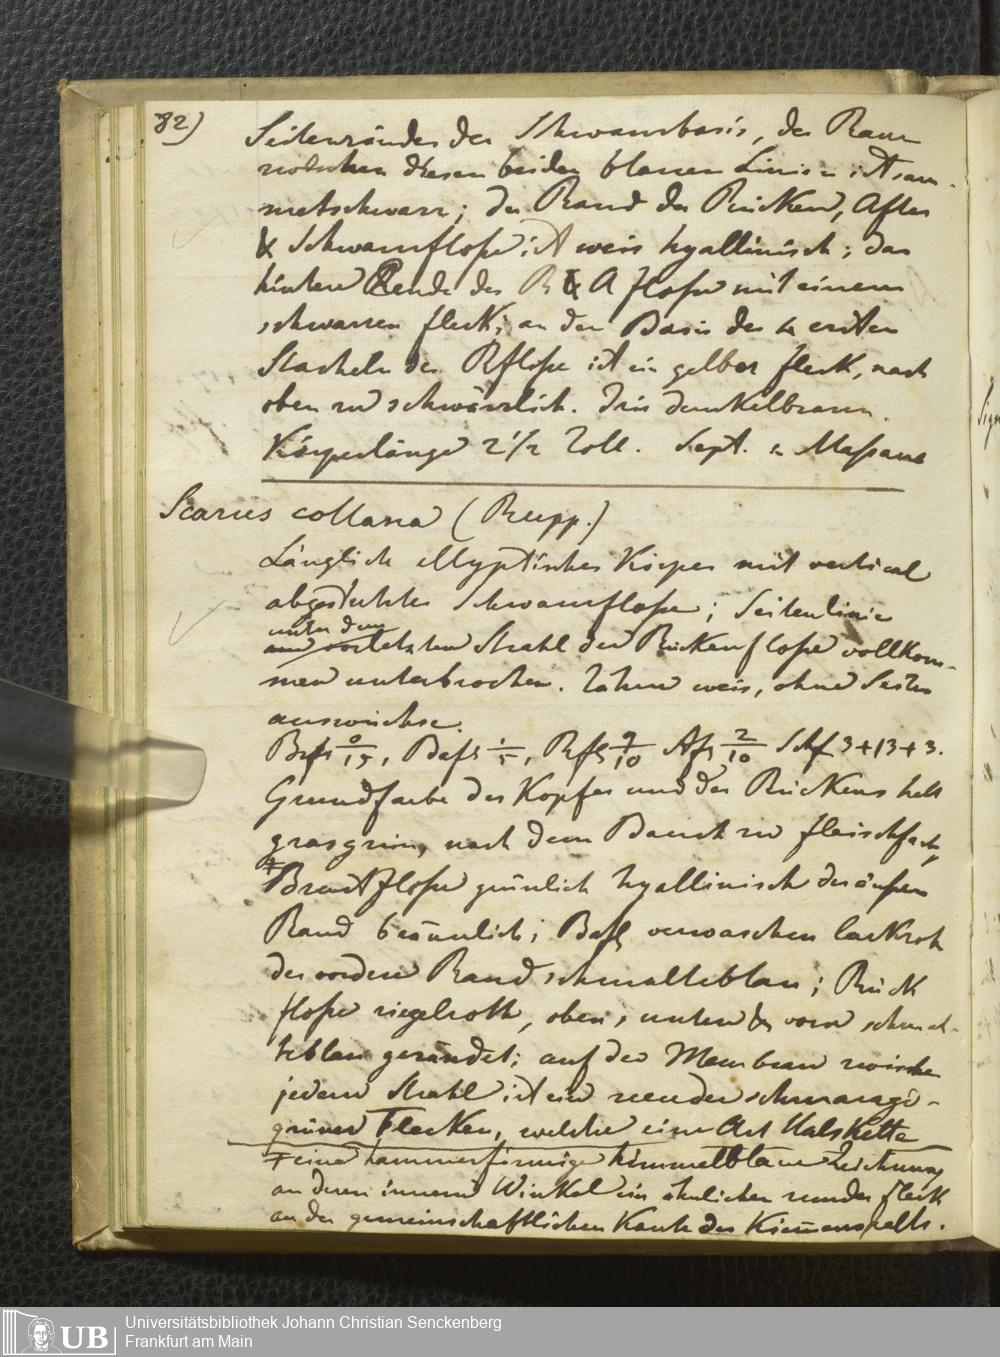 82)
Seitenränder der Schwanzbasis, der Raum
zwischen diesen beiden blauen Linien ist sam-
metschwarz; der Rand der Rücken, After
& Schwanzfloße ist weis hyallinisch; das
hintere Ende der R & A floße mit einem
schwarzen fleck; an der Basis der 4 ersten
Stacheln der Rfloße ist ein gelber fleck, nach
oben zu schwärzlich. Iris dunkelbraun.
Körperlänge 2 1/2 Zoll. Sept. Maßaua
Scarus collana (Rupp.)
Länglich elliptischer Körper mit vertical
abgestutzter Schwanzfloße; Seitenlinie
unter dem
vorletzten Strahl der Rückenfloße vollkom-
men unterbrochen. Zähne weis, ohne Seiten
auswüchse.
Brfs 0/15, Bafs 1/5, Rfs 9/10 Afs 2/10 Schf 3+13+3.
Grundfarbe des Kopfes und des Rückens hell
grasgrün, nach dem Bauch zu fleischfarb,
Brustfloße grünlich hyallinisch der äußere
Rand bräunlich; Bafl verwaschen lackroth
der vordere Rand schmalteblau; Rück
floße ziegelroth, oben, unten & vorn schmal-
teblau gerändet; auf der Membran zwischen
jedem Strahl ist ein runder schmaragd-
grüner Flecken, welche eine Art Halskette
eine hammerförmige himmelblaue Zeichnung
an deren innern Winkel ein ähnlicher runder fleck
an der gemeinschaftlichen Kante des Kiemenspalts.
Universitätsbibliothek Johann Christian Senckenberg
Frankfurt am Main
UB